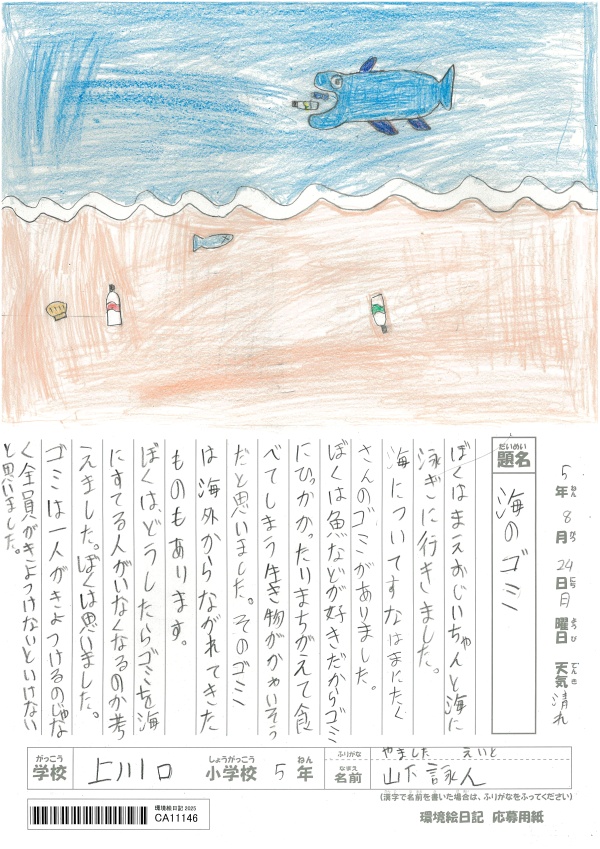 5年 8月 24日 日曜日 天気 晴れ
ねん がつ にち ようび てんき
だいめい
題名
海のゴミ
ぼくはまえおじいちゃんと海に
泳ぎに行きました。
海についてすなはまにたく
さんのゴミがありました。
ぼくは魚などが好きだからゴミ
にひっかかったりまちがえて食
べてしまう生き物がかわいそう
だと思いました。そのゴミ
は海外からながれてきた
ものもあります。
ぼくは、どうしたらゴミを海
にすてる人がいなくなるのか考
えました。ぼくは思いました。
ゴミは一人がきよつけるのじゃな
く全員がきよつけないといけない
と思いました。
がっこう
学校
上川口
しょうがっこう ねん
小学校 5年
ふりがな
やました えいと
なまえ
名前
山下 詠人
(漢字で名前を書いた場合は、ふりがなをふってください)
環境絵日記 2025
CA11146
環境絵日記 応募用紙